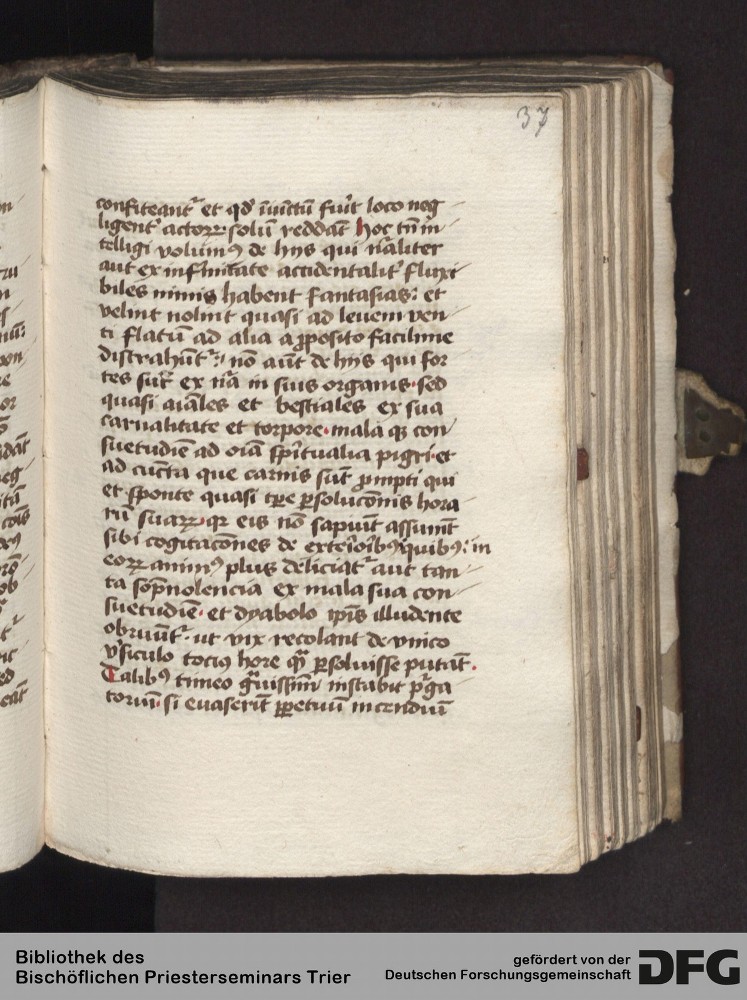 37
confiteant᷑ et qd̕ iniūctū fuīt loco neg
ligent᷑ actoꝝ solū reddāt hoc tn̄ in
telligi volum⁹ de hijs qui nāliter
aut ex infirmitate accidentalit᷑ fluxi
biles nimis habent fantasias: et
velint nolint quasi ad leuem ven
ti flatum ad alia a ꝓposito facilime
distrahūt᷑: nō aūt de hijs qui for
tes sūt ex nā in suis organis. sed
quasi aiāles et bestiales ex sua
carnalitate et torpore. mala qꝫ con
suetudīe ad oīa spīritualia pigri et
ad cūcta que carnis sūt ꝓmpti qui
et sponte quasi tꝑe ꝑsolucōnis hora
rū suaꝝ. qꝛ eis nō sapiūt assumūt
sibi cogitacōnes de exterīorib⁹ quib⁹: in
eoꝝ anim⁹ plus deliciat᷑ aut tan
ta sopnolencia ex mala sua con
suetudīe. et dyabolo ip̄is illudente
obruūt᷑. ut vix recolant de vnico
v᷑siculo toci⁹ hore quā ꝑsoluisse putāt.
Talib⁹ timeo gͣuissim̄ instabit p᷑ga
toriū. si euaserīt ꝑpetuū incendiū
Bibliothek des
Bischöflichen Priesterseminars Trier
gefördert von der
Deutschen Forschungsgemeinschaft
DFG